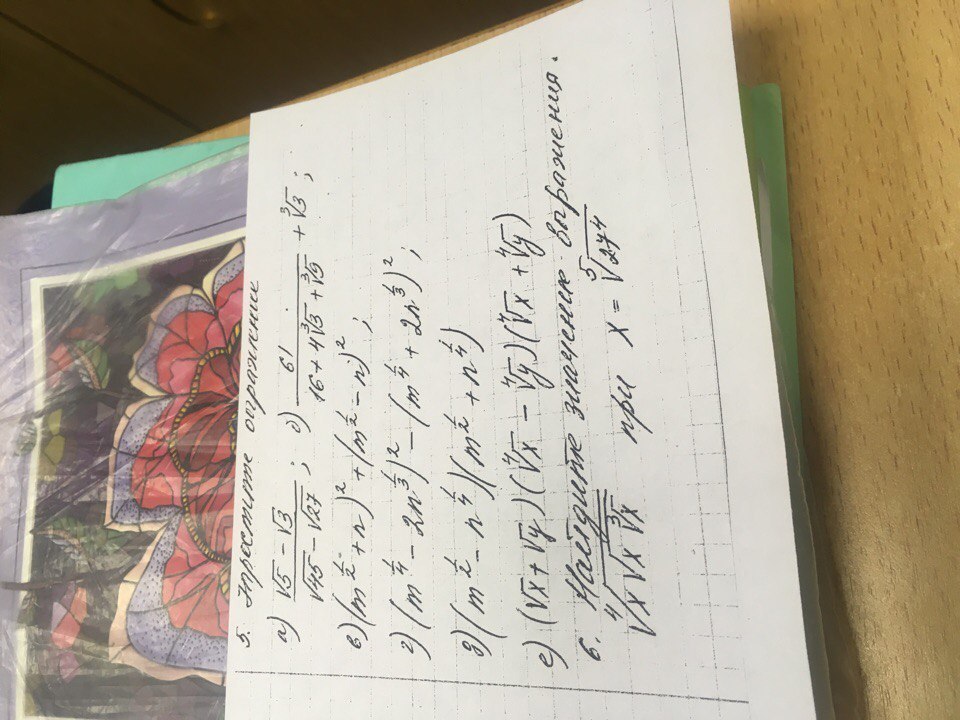 5. Упростите выражение
а) (√5 - √3)/(√45 - √27); б) 61/(16 + 4∛3 + ∛9) + ∛3;
в) (m^(1/2) + n)² + (m^(1/2) - n)²;
г) (m^(1/4) - 2n^(1/3))² - (m^(1/4) + 2n^(1/3))²;
д) (m^(1/2) - n^(1/4))(m^(1/2) + n^(1/4))
е) (√x + √y)(∜x - ∜y)(∜x + ∜y)
6. Найдите значение выражения.
∜(x√(x∛x)) при x = ⁵√(2y4)